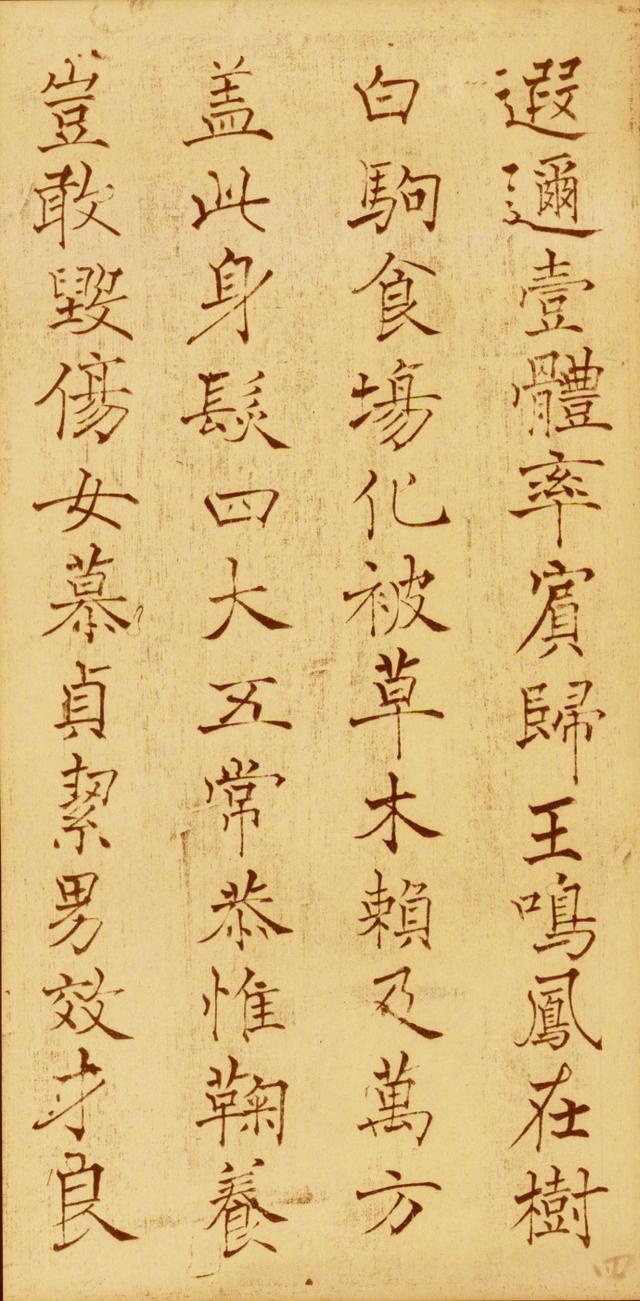 遐邇壹體率賓歸王鳴鳳在樹
白駒食場化被草木賴及萬方
盖此身髮四大五常恭惟鞠養
豈敢毀傷女慕貞絜男效才良
四